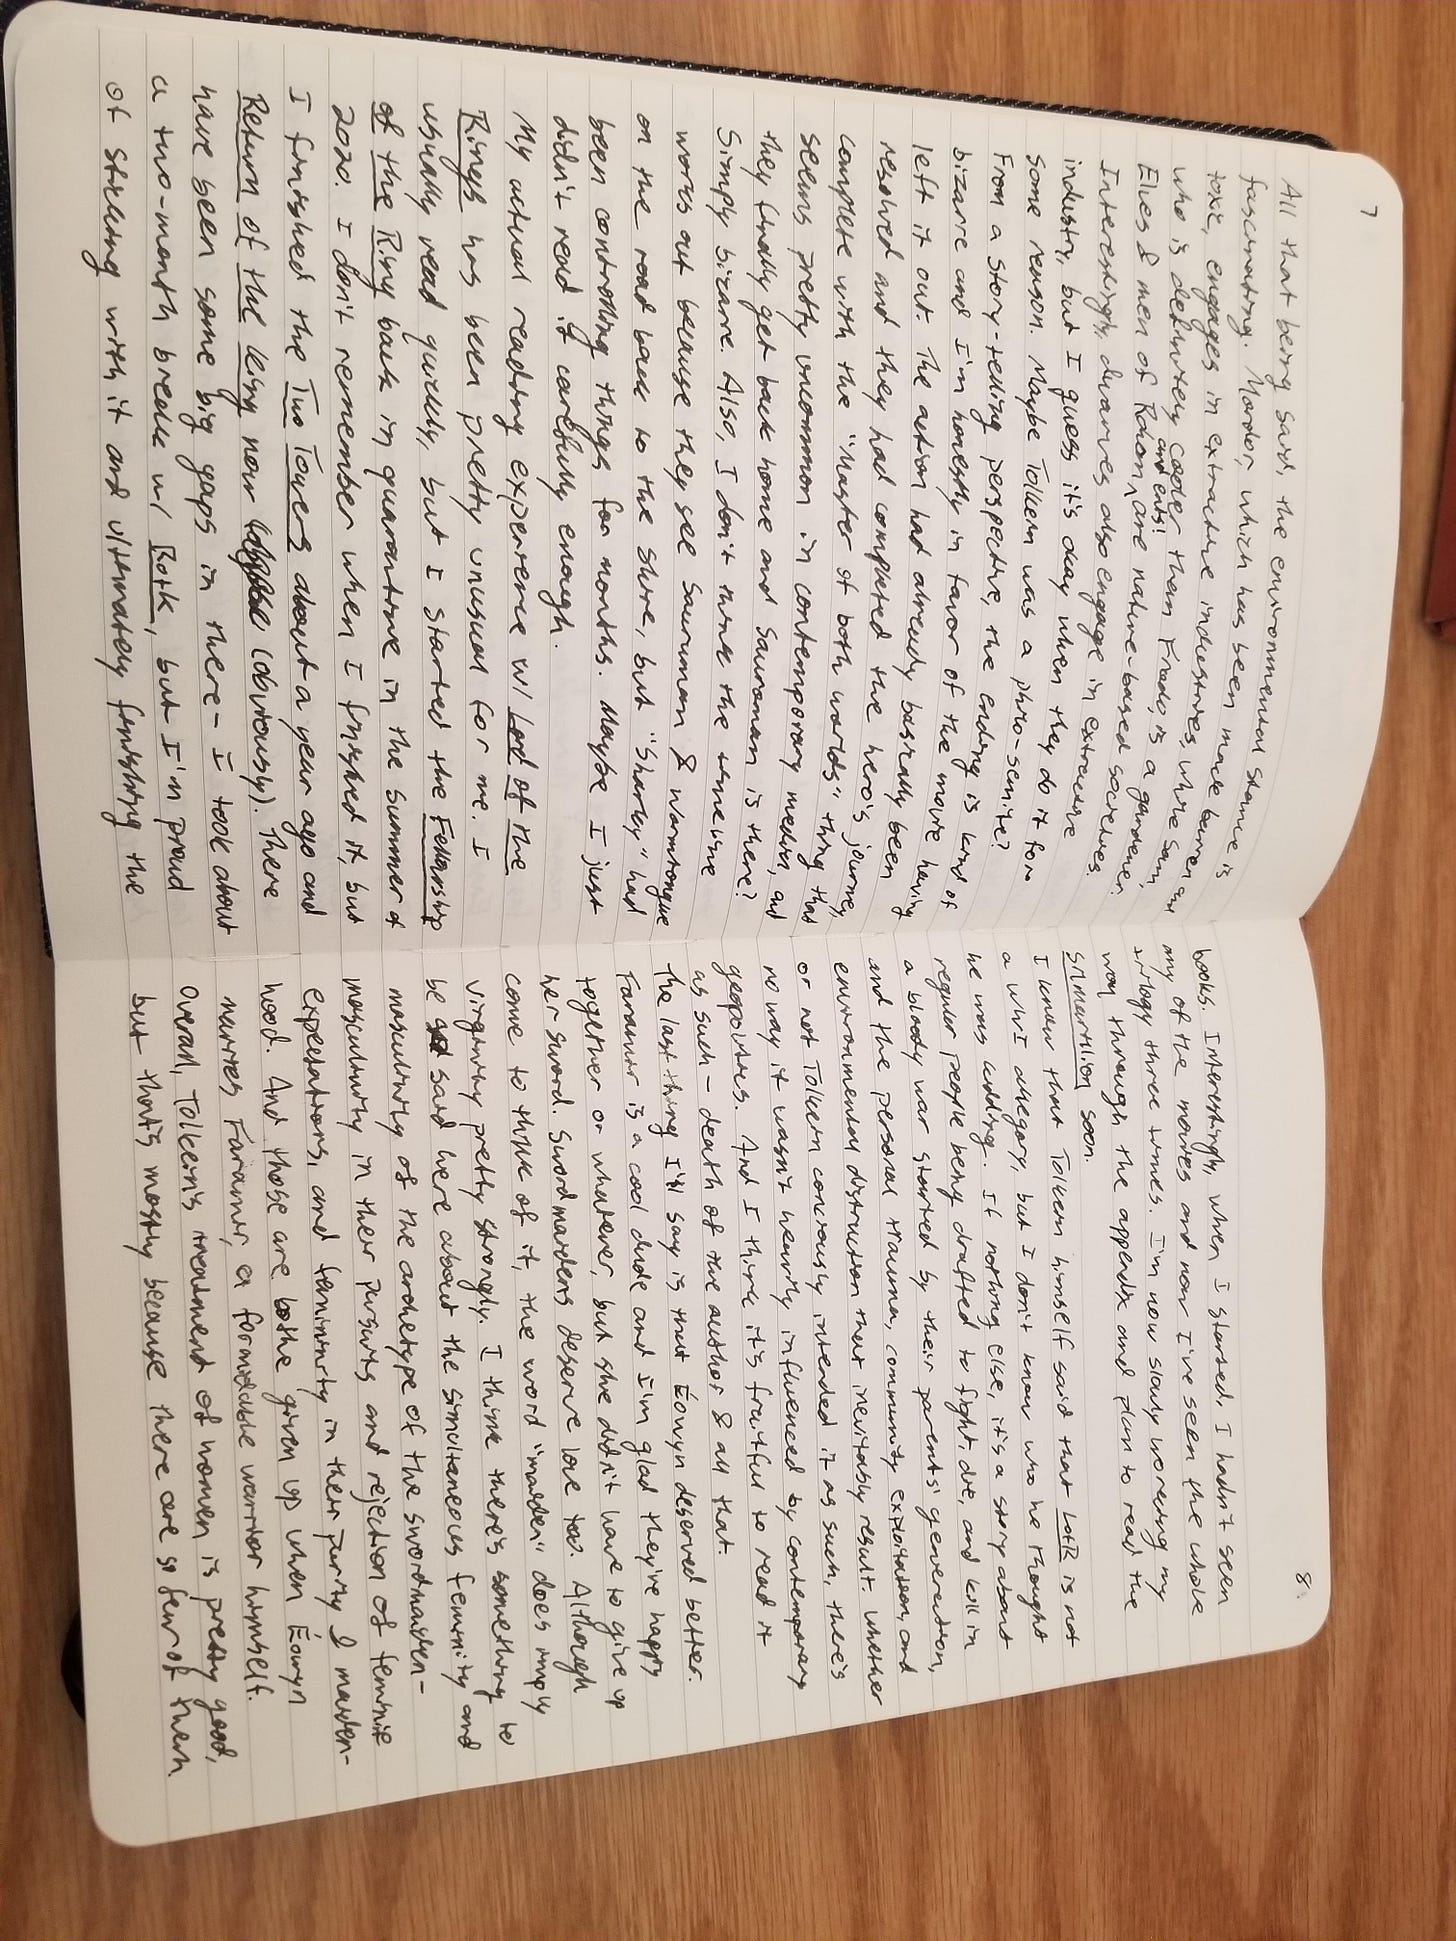 7
All that being said, the environmental stance is
fascinating. Mordor, which has been made barren and
toxic, engages in extractive industries, while Sam,
who is definitely cooler than Frodo, is a gardener.
and ents!
Elves & men of Rohan, are nature-based societies.
Interestingly, dwarves also engage in extractive
industry, but I guess it's okay when they do it for
some reason. Maybe Tolkein was a philo-semite?
From a story-telling perspective, the ending is kind of
bizarre and I'm honestly in favor of the movie having
left it out. The action had already basically been
resolved and they had completed the hero's journey,
complete with the "master of both worlds" thing that
seems pretty uncommon in contemporary media, and
they finally get back home and Sauroman is there?
Simply bizarre. Also, I don't think the timeline
works out because they see Sauruman & Wormtongue
on the road back to the shire, but "Sharkey" had
been controlling things for months. Maybe I just
didn't read it carefully enough.
My actual reading experience w/ Lord of the
Rings has been pretty unusual for me. I
usually read quickly, but I started the Fellowship
of the Ring back in quarantine in the summer of
2020. I don't remember when I finished it, but
I finished the Two Towers about a year ago and
Return of the King now (obviously). There
have been some big gaps in there - I took about
a two-month break w/ RotK, but I'm proud
of sticking with it and ultimately finishing the
8
books. Interestingly, when I started, I hadn't seen
any of the movies and now I've seen the whole
trilogy three times. I'm now slowly working my
way through the appendix and plan to read the
Silmarilion soon.
I know that Tolkein himself said that LotR is not
a WWI allegory, but I don't know who he thought
he was kidding. If nothing else, it's a story about
regular people being drafted to fight, die, and kill in
a bloody war started by their parents' generation,
and the personal trauma, community exploitation, and
environmental distruction that inevitably result. Whether
or not Tolkein conciously intended it as such, there's
no way it wasn't heavily influenced by contemporary
geopolitics. And I think it's fruitful to read it
as such - death of the author & all that.
The last thing I'll say is that Éowyn deserved better.
Faramir is a cool dude and I'm glad they're happy
together or whatever, but she didn't have to give up
her sword. Swordmaidens deserve love too. Although
come to think of it, the word "maiden" does imply
virginity pretty strongly. I think there's something to
be said here about the simultaneous feminity and
masculinity of the archetype of the swordmaiden -
masculinity in their pursuits and rejection of feminie
expectations, and femininity in their purity & maiden-
hood. And those are bothe given up when Éowyn
marries Faramir, a formidable warrior himself.
Overall, Tolkein's treatment of women is pretty good,
but that's mostly because there are so few of them.